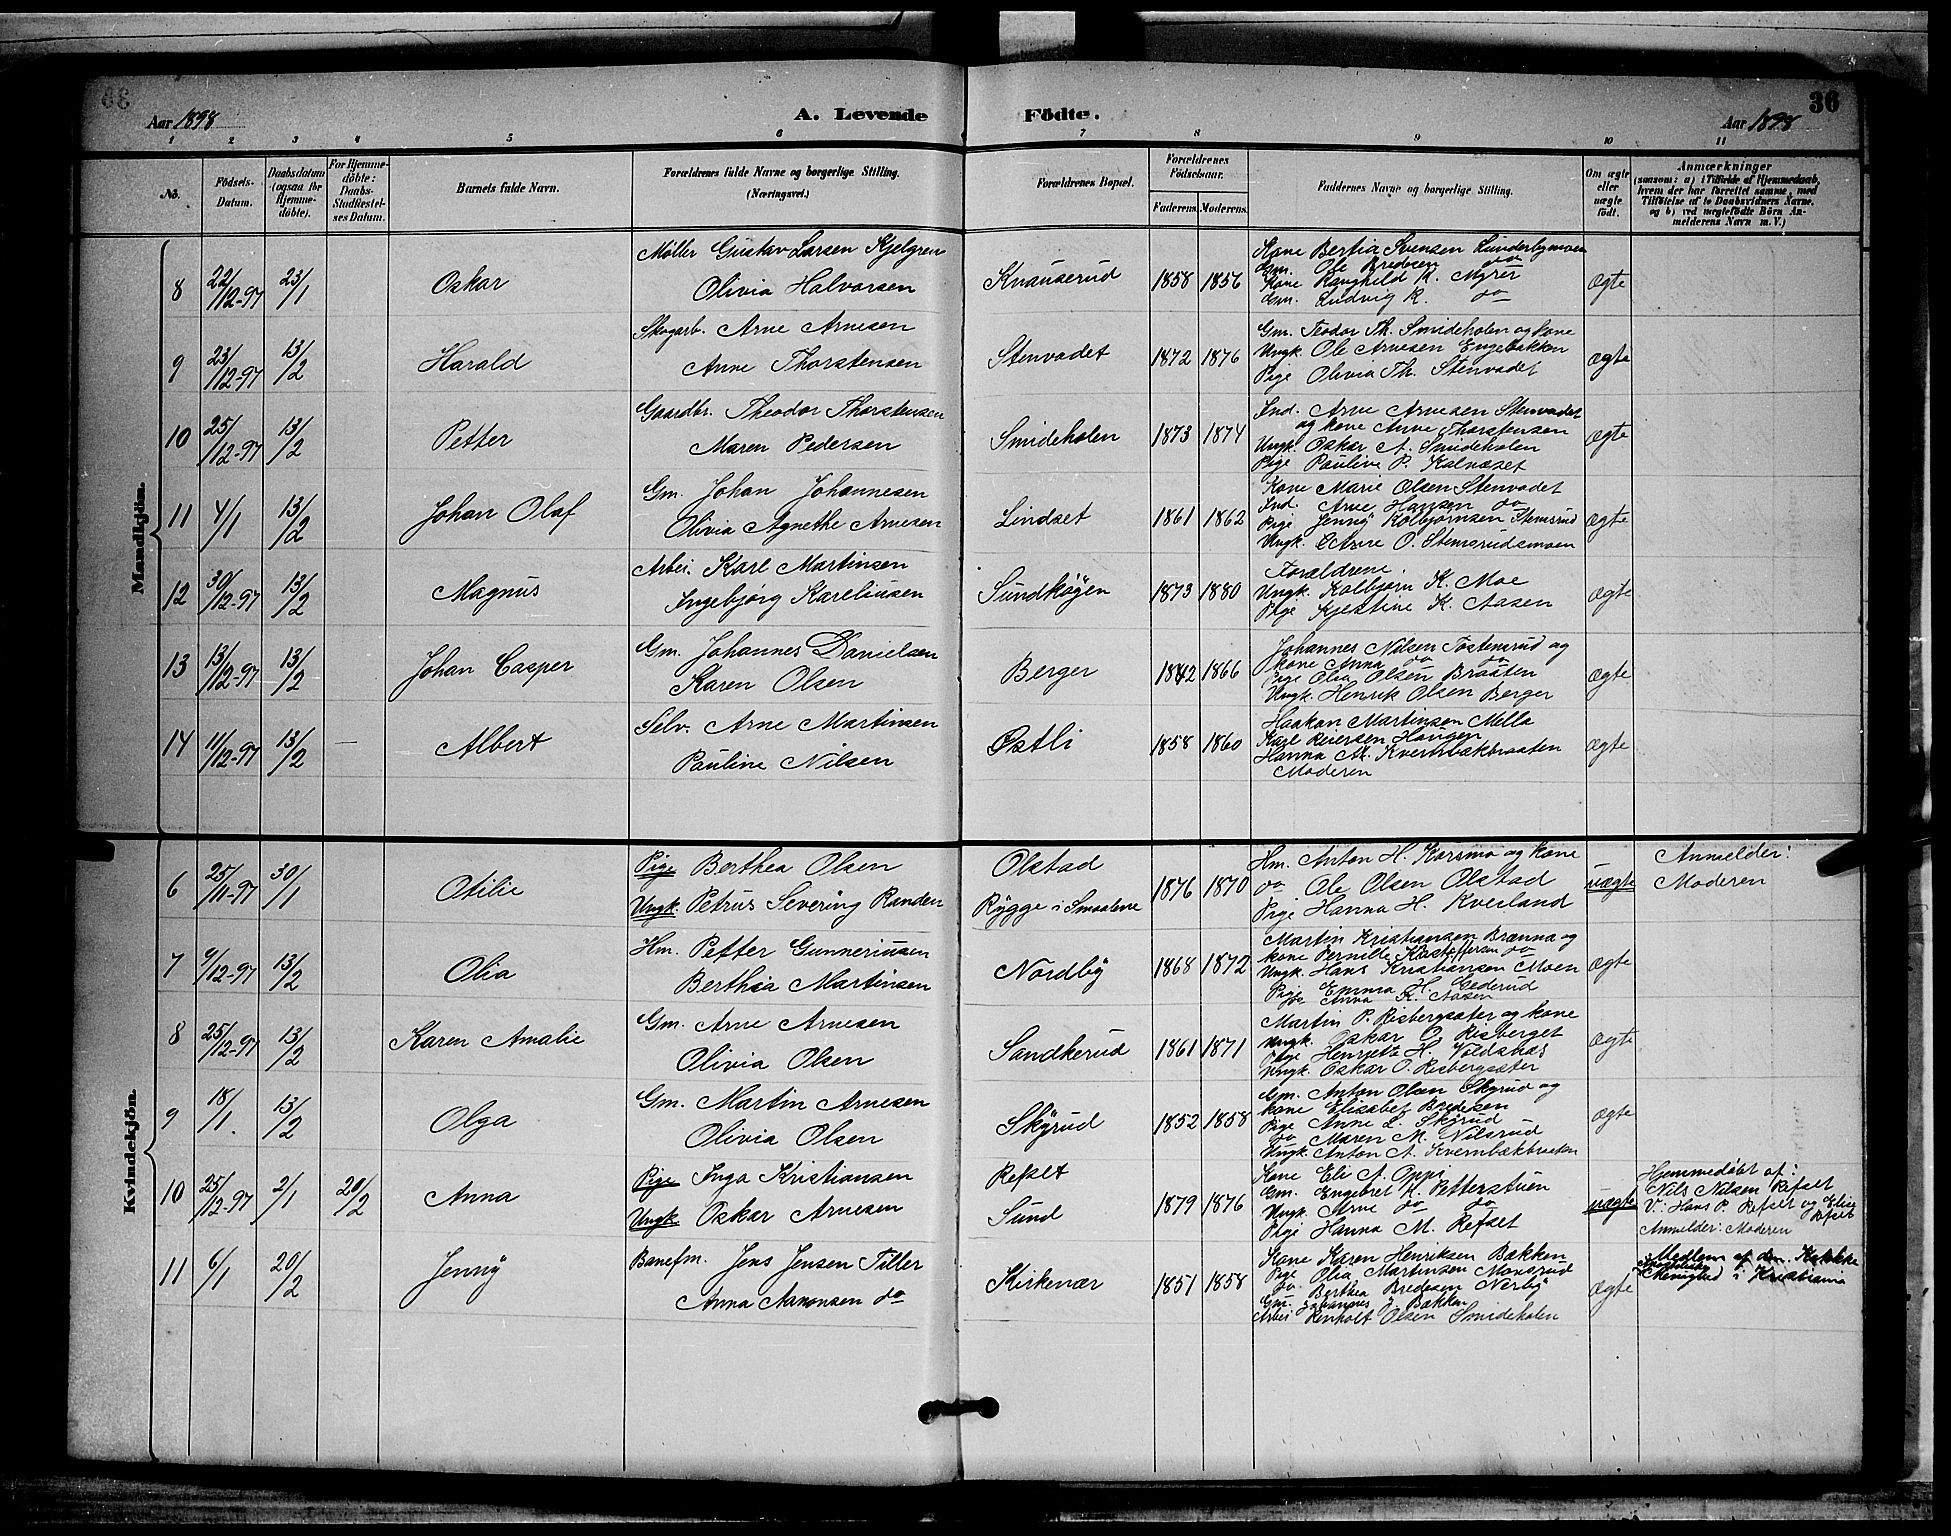 36
Aar 1898
A. Levende Födte.
Aar 1898
1 2 3 4 5 6 7 8 9 10 11
No.
Födsels-Datum.
Daabsdatum (ogsaa for Hjemme-döbte).
For Hjemme-döbte: Daabs-Stadfæstel-ses Datum.
Barnets fulde Navn.
Forældrenes fulde Navne og borgerlige Stilling.
(Næringsvei.)
Forældrenes Bopæl.
Forældrenes Födselsaar.
Faderens. Moderens.
Faddernes Navne og borgerlige Stilling.
Om ægte eller uægte födt.
Anmærkninger
(saasom: a) i Tilfælde af Hjemmedaab,
hvem der har forrettet samme, med
Tilföielse af to Daabsvidners Navne,
og b) ved uægtefödte Börn An-
melderens Navn m. V.)
Mandkjön.
8 22/12-97 23/1 Oskar
Møller Gustav Larsen Kjelgren
Olivia Halvorsen
Knauserud 1858 1856
Kone Bertia Svensen Lunderbymoen
Gm. Ole Bredesen do
Kone Ranghild K. Myrer
Gm. Ludvig K. do
ægte
9 23/12-97 13/2 Harald
Skogarb. Arne Arnesen
Anne Thorstensen
Stenvadet 1872 1876
Gm. Teodor Th. Smideholen og kone
Ungk. Ole Arnesen Engebakken
Pige Olivia Th. Stenvadet
ægte
10 25/12-97 13/2 Petter
Gaardbr. Theodor Thorstensen
Maren Pedersen
Smideholen 1873 1874
Ind. Arne Arnesen Stenvadet
og kone Anne Thorstensen
Ungk. Oskar A. Smideholen
Pige Pauline P. Kalnæset
ægte
11 4/1 13/2 Johan Olaf
Gm. Johan Johannesen
Olivia Agnethe Arnesen
Lindset 1861 1862
Kone Marie Olsen Stenvadet
Ind. Arne Hansen do
Pige Jenny Kolbjørnsen Stemsrud
Ungk. Arne O. Stemsrudsmoen
ægte
12 30/12-97 13/2 Magnus
Arbei. Karl Martinsen
Ingebjørg Kareliusen
Sundkøgen 1873 1880
Forældrene.
Ungk. Kolbjørn K. Moe
Pige Kjestine K. Aasen
ægte
13 13/12-97 13/2 Johan Casper
Gm. Johannes Danielsen
Karen Olsen
Berger 1842 1866
Johannes Nilsen Tostensrud og
kone Anna do do
Pige Olia Olsen Braaten
Ungk. Henrik Olsen Berger
ægte
14 11/12-97 13/2 — Albert
Selv. Arne Martinsen
Pauline Nilsen
Østli 1858 1860
Haakon Martinsen Mella
Karl Reiersen Haugen
Hanna M. Kvernbækbraaten
Moderen
ægte
Kvindekjön.
6 25/11-97 30/1 Otilie
Pige Berthea Olsen
Ungk. Petrus Severing Randen
Olstad
Rygge i Smaalene
1876 1870
Hm. Anton H. Korsmo og kone
do Ole Olsen Olstad
Pige Hanna H. Kveiland
uægte
Anmelder:
Moderen
7 9/12-97 13/2 Olia
Hm. Petter Gunneriusen
Berthea Martinsen
Nordby 1868 1872
Martin Kristiansen Brænna og
kone Pernille Kristoffersen do
Ungk. Hans Kristiansen Moen
Pige Emma H. Gederud
Pige Anna K. Aasen
ægte
8 25/12-97 13/2 Karen Amalie
Gm. Arne Arnesen
Olivia Olsen
Sandkerud 1861 1871
Martin P. Risbergsæter og kone
Ungk. Oskar O. Risberget
Pige Henriette H. Voldsnæs
Ungk. Oskar O. Risbergsæter
ægte
9 18/1. 13/2 Olga
Gm. Martin Arnesen
Olivia Olsen
Skyrud 1852 1858
Gm. Anton Olsen Skyrud og
kone Elisabet Bredesen
Pige Anne L. Skyrud
do Maren M. Nilsrud
Ungk. Anton A. Kvernbækbraaten
ægte
10 25/12-97 2/1 20/2 Anna
Pige Inga Kristiansen
Ungk. Oskar Arnesen
Refset
Sund
1879 1876
Kone Eli A. Oppi
Gm. Engebret K. Petterstuen
Ungk. Arne do do
Pige Hanna M. Refset
uægte
Hjemmedøbt af:
Nils Nilsen Refset
V.: Hans P. Refset og Elise Refset
Anmelder: Moderen
11 6/1 20/2 Jenny
Banefm. Jens Jensen Tiller
Anna Aanonsen do
Kirkenær 1851 1858
Kone Karen Henriksen Bækken
Pige Olia Martinsen Monsrud
do Berthea Bredesen Nerby
Gm. Johannes J. Bækken
Arbei Renholt Olsen Smideholen
ægte
Medlem af den Katolske
Apostoliske
Menighed i Kristiania